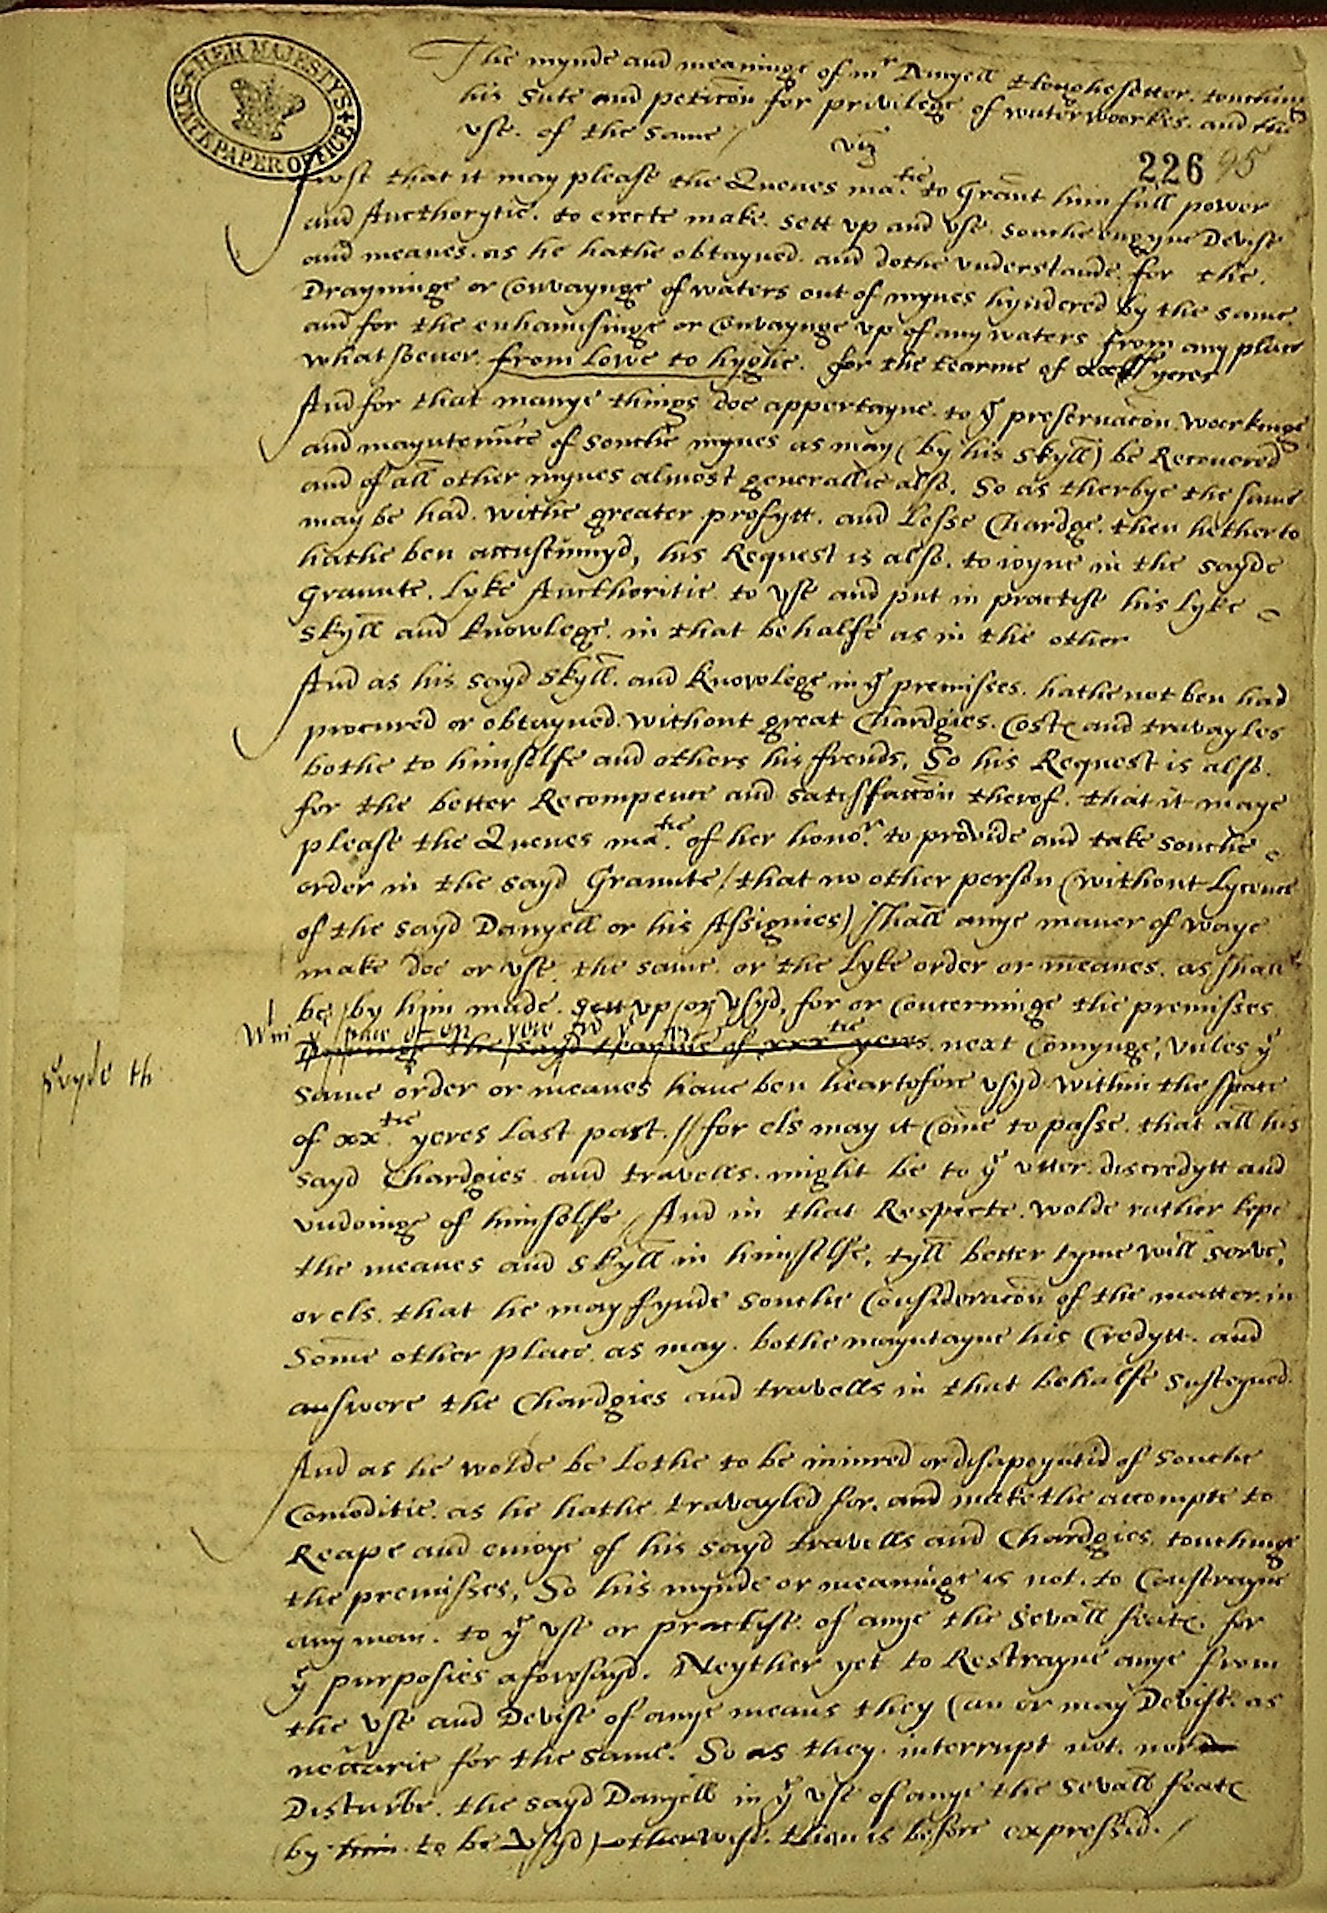 HER MAJESTY'S STATE PAPER OFFICE
The mynde and meaninge of mr Danyell Houghesetter. touching
his sute and peticōn for privilege of waterwoorkes. and the
vse. of the same /
viz
226 95
First that it may please the Quenes ma.tie to Graūt him full power
and Aucthorytie. to erecte make. sett vp and vse. souche engyne Devise
and meanes. as he hathe obtayned. and dothe vnderstande. for the.
Drayninge or Convaynge of waters out of mynes hyndered by the same.
and for the enhaunsinge or Convaynge vp of any waters from any place
whatsoever. from Lowe to hyghe. for the tearme of yeres
And for that manye things doe appertayne. to ye preservacōn. woorkinge
and mayntennce of souche mynes as may (by his skyll) be Recovered
and of all other mynes almost generallie also. So as therbye the same
may be had. withe greater profytt. and Lesse Chardge. then hetherto
hathe ben accustumyd, his Request is also. to ioyne in the sayde
Graunte. Lyke Aucthoritie. to vse and put in practise his lyke =
skyll and knowlege. in that behalfe as in the other
And as his sayd skyll. and knowlege in ye premisses. hathe not ben had
procured or obtayned. without great Chardgies. Costes and travayles
bothe to himselfe and others his frends. So his Request is also.
for the better Recompence and satisfaccōn therof. that it maye
please the Quenes ma.tie of her honor. to provide and take souche =
order in the sayd Graunte / that no other person (without Lycence
of the sayd Danyell or his Assignies) shall anye maner of waye
make doe or vse. the same. or the Lyke order or meanes. as shall
be / by him made. sett vp / or vsyd, for or concerninge the premisses
the sayd tearme of xxxtie yeres. next Comynge, vnles ye
same order or meanes have ben heartofore vsyd within the space
of xx.tie yeres Last past. // for els may it Come to passe. that all his
sayd Chardgies and travells. might be to ye vtter. discredytt and
vndoinge of himselfe / And in that Respecte. wolde rather kepe
the meanes and skyll in himselfe, tyll better tyme will serve,
or els. that he may fynde souche Consideracōn of the matter. in
Some other place. as may. bothe mayntayne his Credytt. and
answere the Chardgies and travells in that behalfe susteyned.
And as he wolde be Lothe to be iniured or disapoyntid of souche
Comoditie. as he hathe. travayled for. and make the accompte to
Reape and enioye of his sayd travells and Chardgies. touchinge
the premisses, So his mynde or meaninge is not. to Constrayne
any man. to ye vse or practise. of anye the Sevall feate. for
ye purposies aforesayd. Neyther yet to Restrayne anye from
the vse and Devise of anye means they Can or may Devise. as
neccarie for the same. So as they. interrupt not. nor
Disturbe. the sayd Danyell in ye vse of anye the Sevall feate
by him. to be vsyd / otherwise. then is before expressid. /